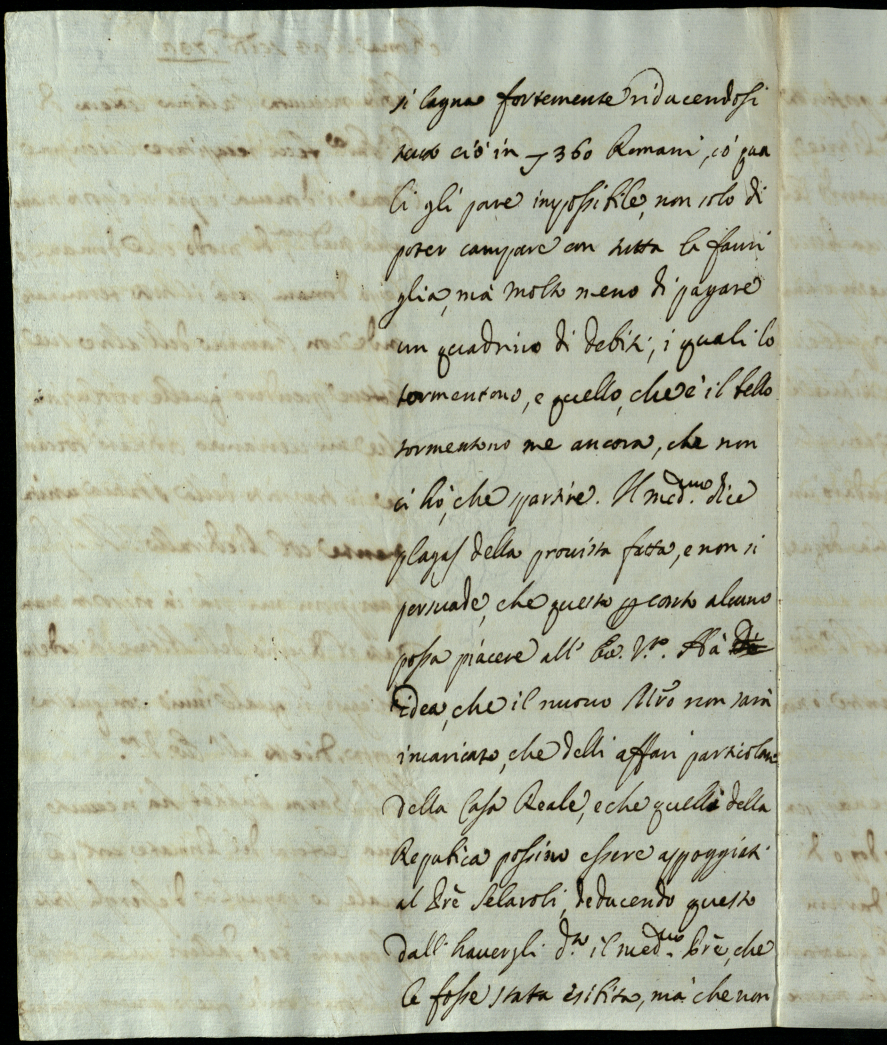 si lagna fortemente riducendosi
tutto ciò in 360 Romani, có qua
li gli pare impossibile, non solo di
poter campare con tutta la fami
glia, mà molto meno di pagare
un quadrino di debiti, i quali lo
tormentono, e quello, che è il bello
tormentono me ancora, che non
ci hò, che partire. Il med.mo dice
plagas della provista fatta, e non si
persuade, che questo p conto alcuno
possa piacere all' Ecc. V.ra. Hà
idea, che il nuovo Mro non sarà
incaricato, che delli affari particolari
della Casa Reale, e che quelli della
Republica possino essere appoggiati
al Prê Selaroli, deducendo questo
dall' havergli d.to il med.mo Prê, che
le fosse stata esibita, mà che non